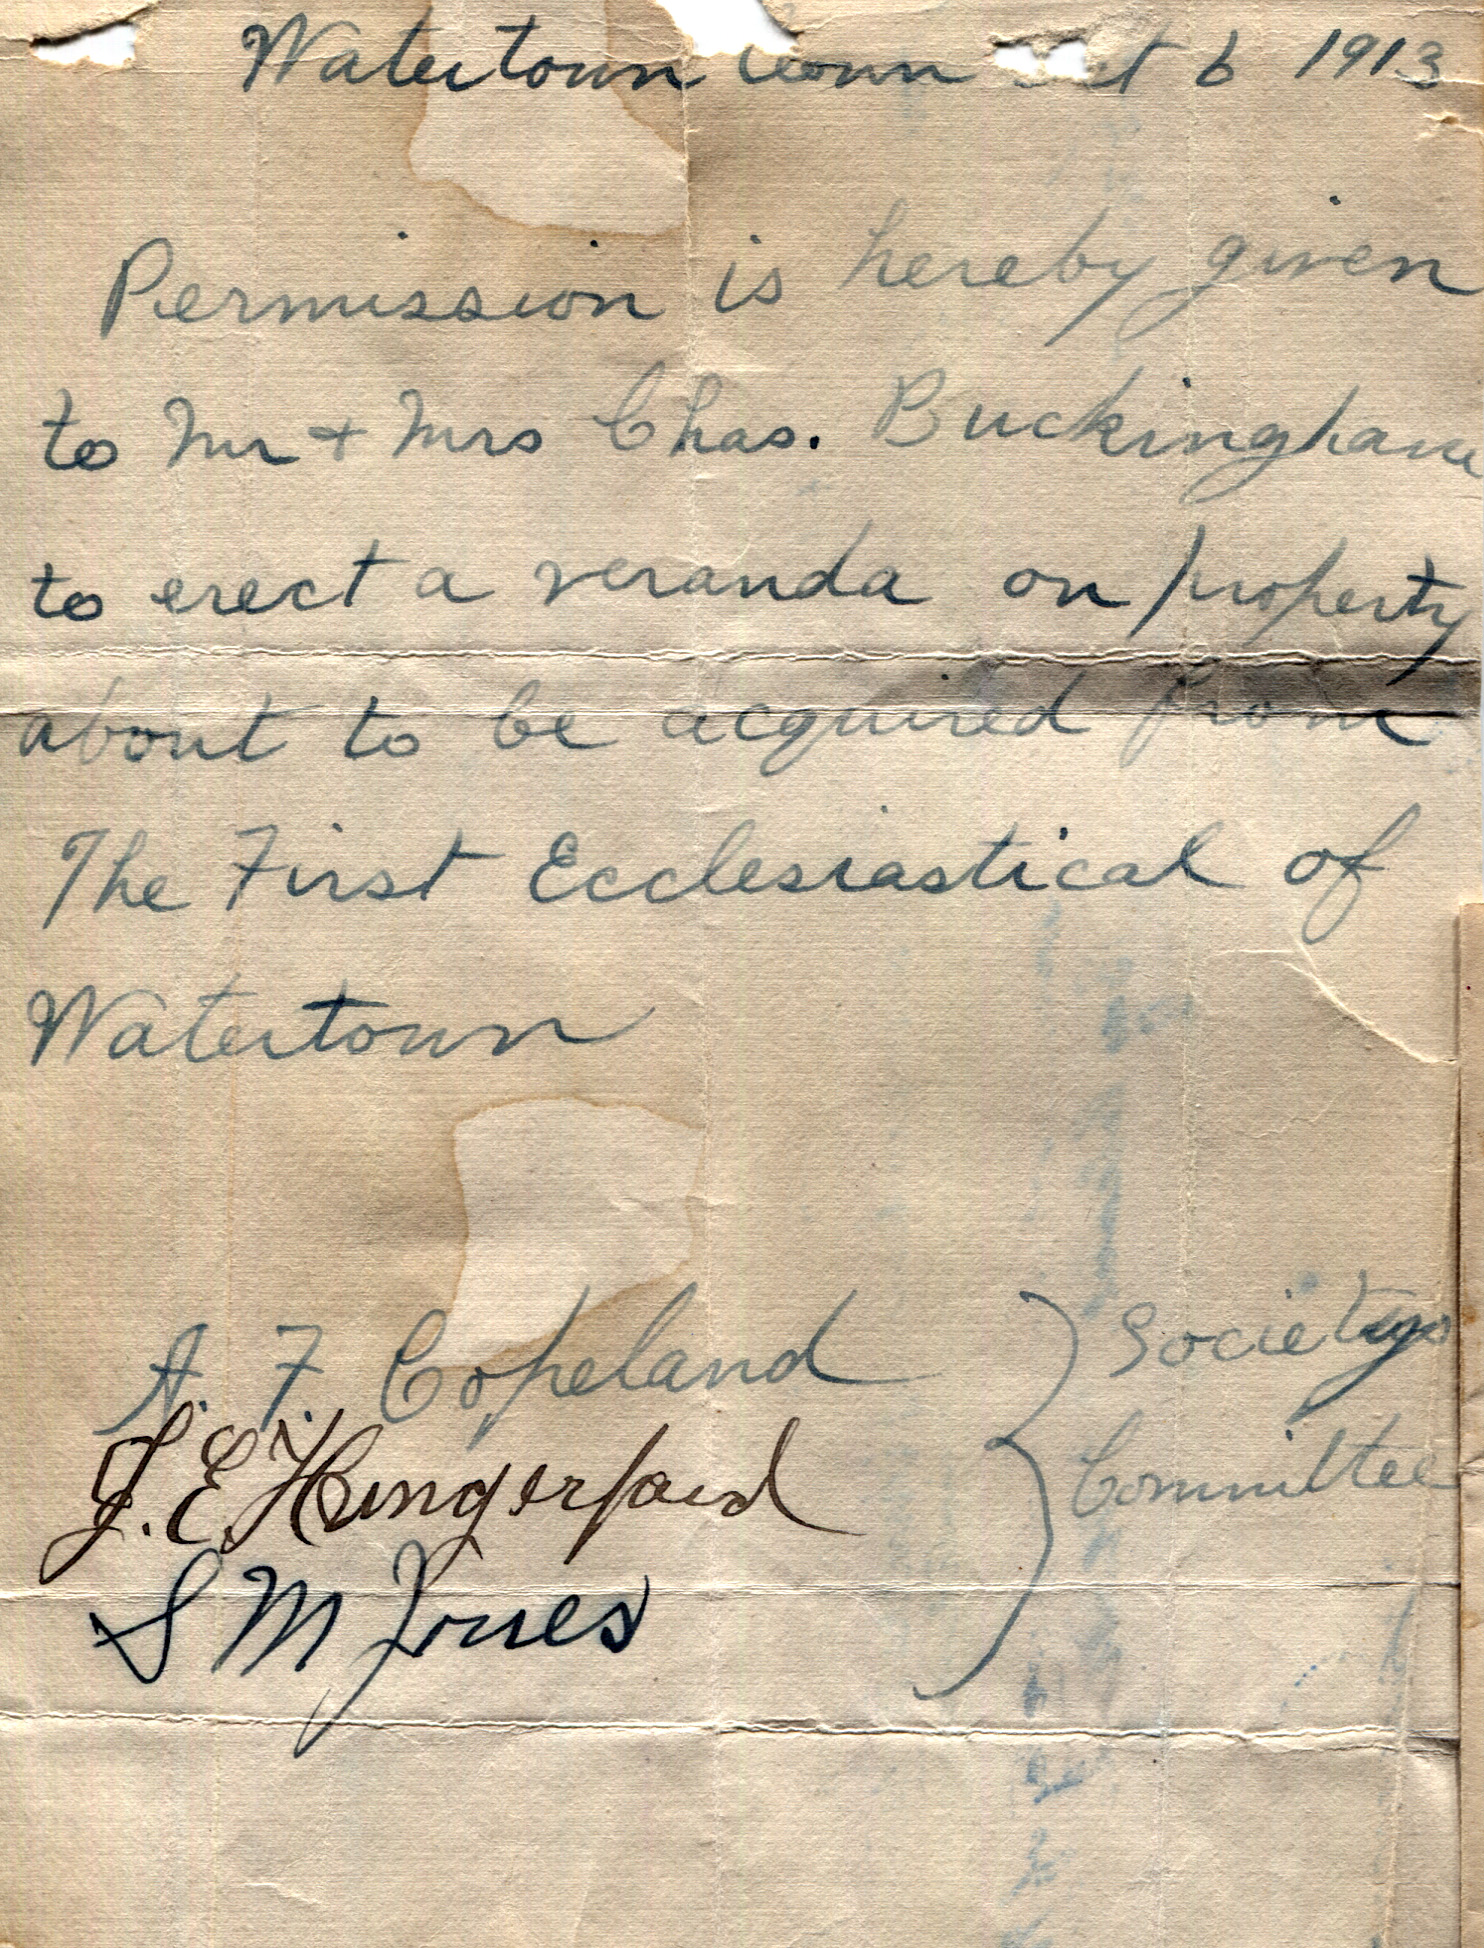 Watertown Conn Oct 6 1913
Permission is hereby given
to Mr + Mrs Chas. Buckingham
to erect a veranda on property
about to be acquired from
The First Ecclesiastical of
Watertown
A. F. Copeland
Societys
J. E. Hungerford
Committee
S M Jones